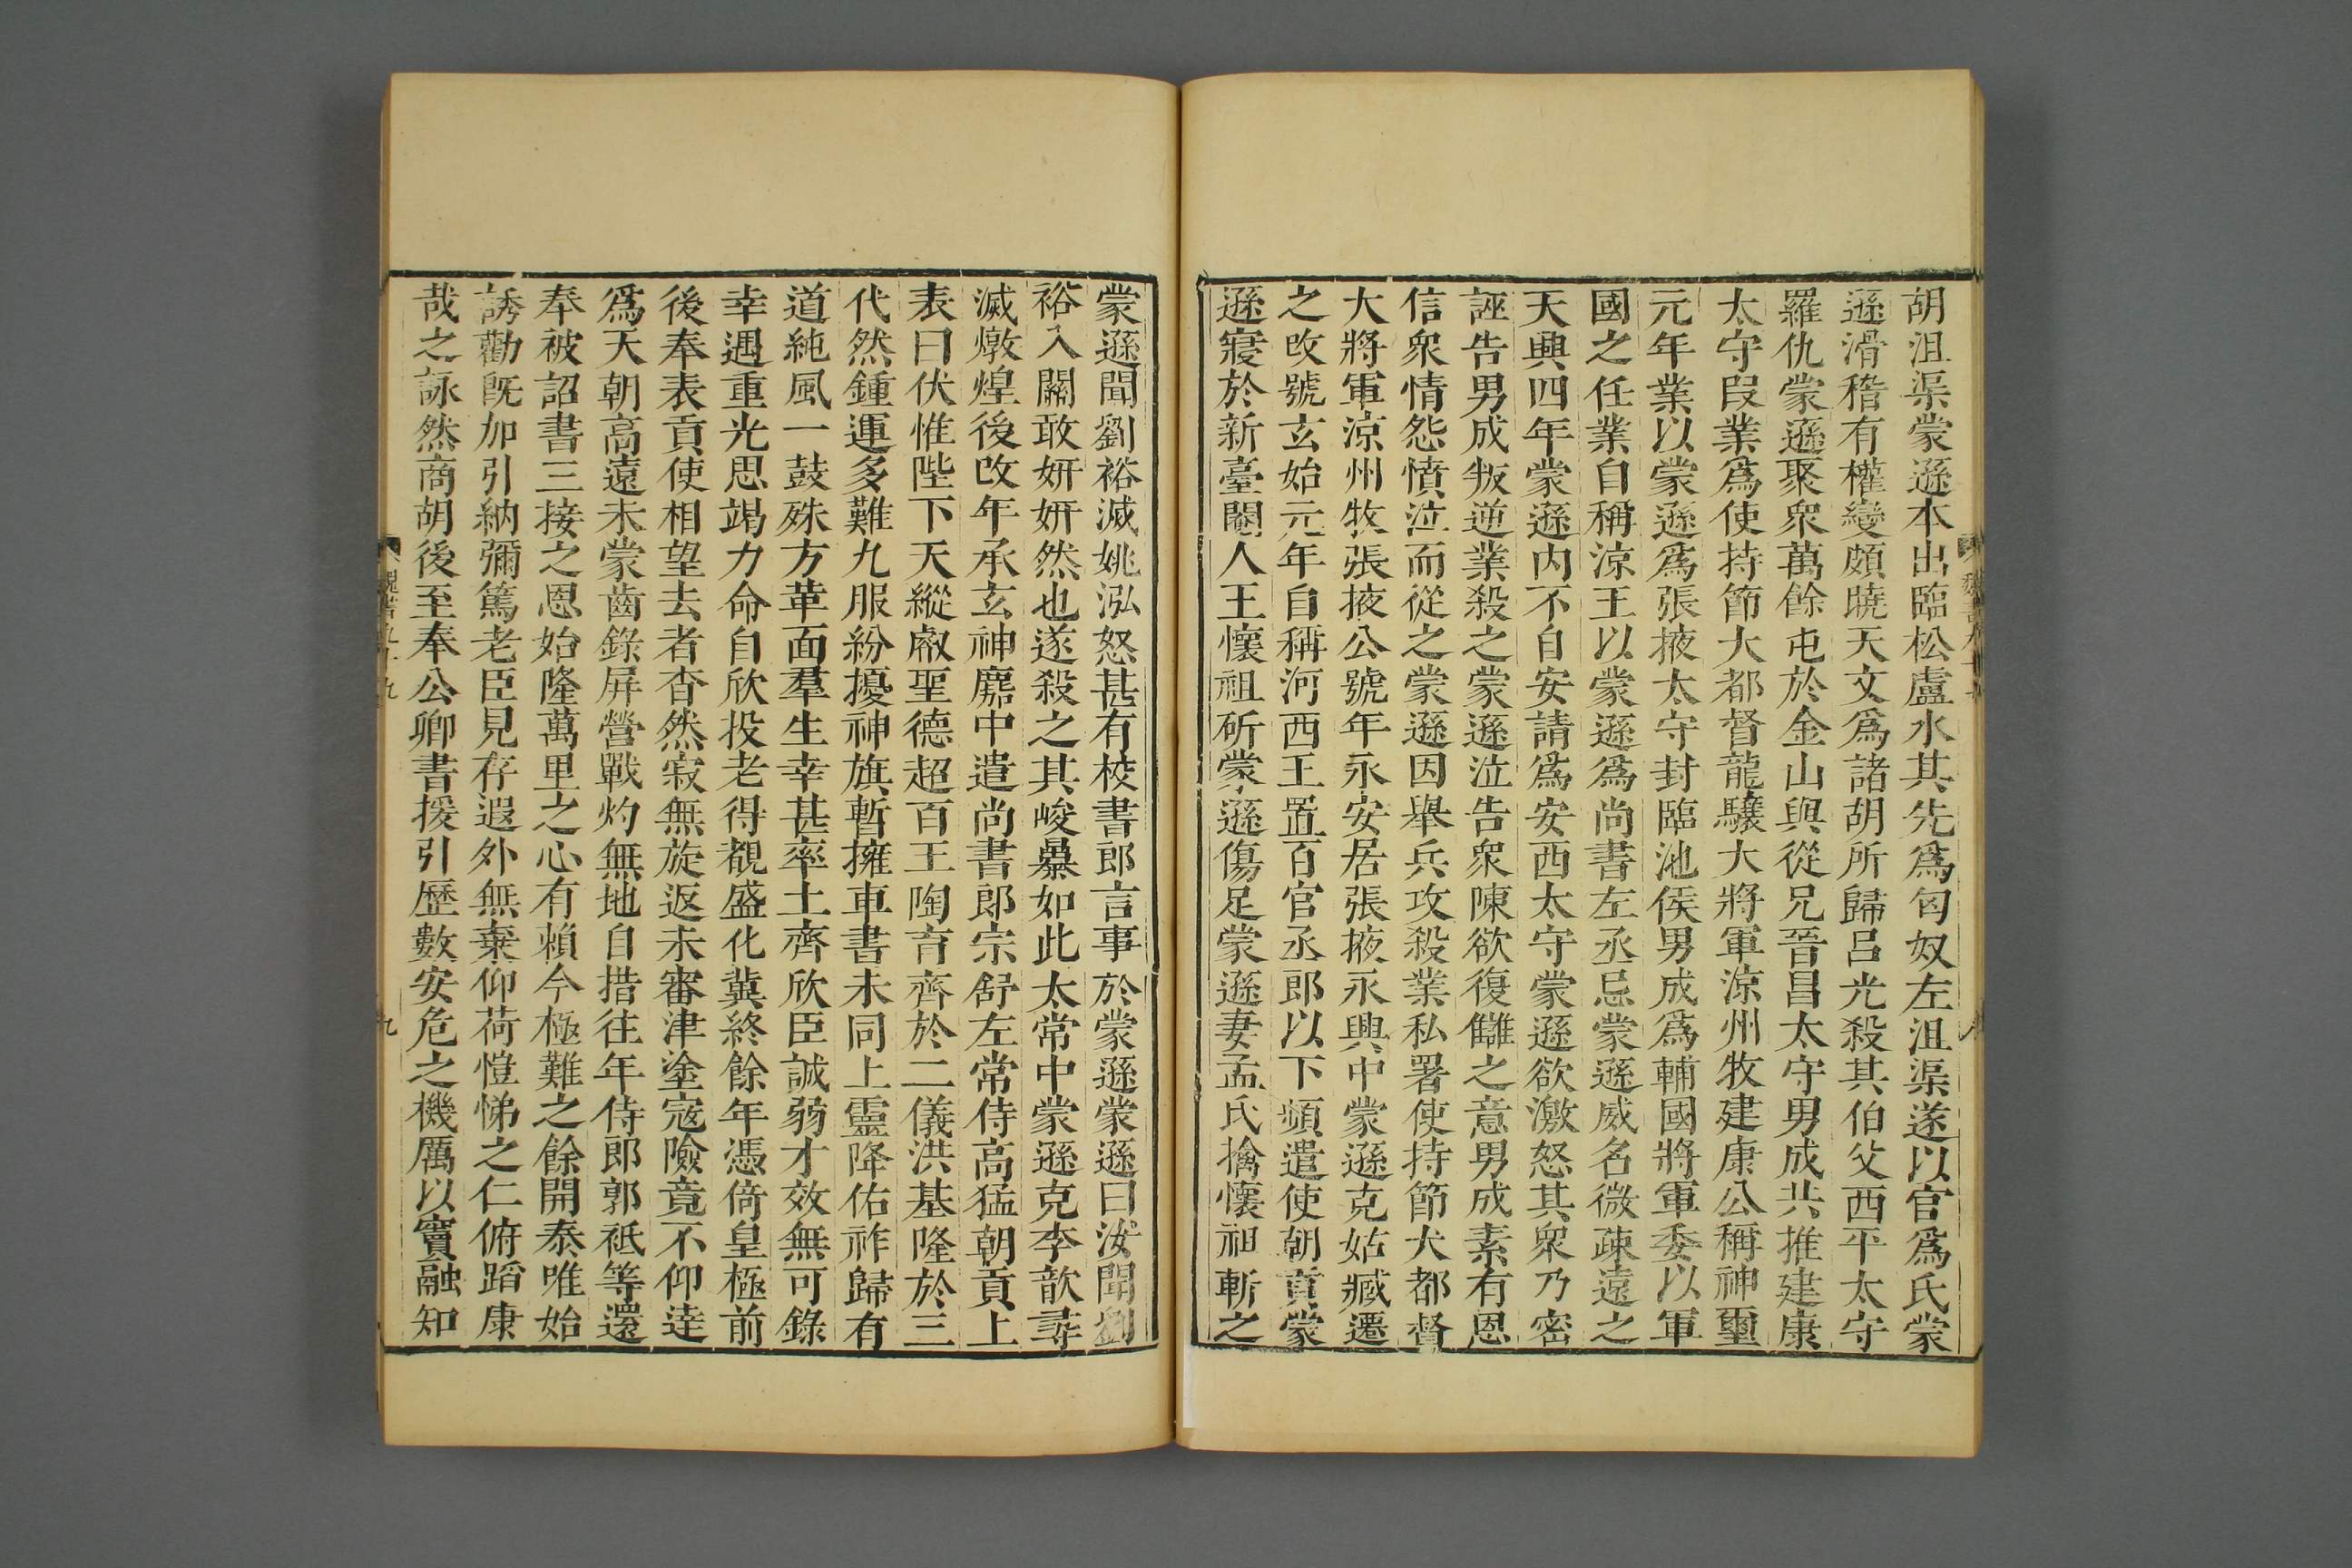 胡沮渠蒙遜本出臨松盧水其先爲匈奴左沮渠遂以官爲氏蒙
遜滑稽有權變頗曉天文爲諸胡所歸呂光殺其伯父西平太守
羅仇蒙遜聚衆萬餘屯於金山與從兄晉昌太守男成共推建康
太守段業爲使持節大都督龍驤大將軍涼州牧建康公稱神璽
元年業以蒙遜爲張掖太守封臨池侯男成爲輔國將軍委以軍
國之任業自稱涼王以蒙遜爲尚書左丞忌蒙遜威名微疎遠之
天興四年蒙遜内不自安請爲安西太守蒙遜欲激怒其衆乃密
誣告男成叛逆業殺之蒙遜泣告衆陳欲復讎之意男成素有恩
信衆情怨憤泣而從之蒙遜因舉兵攻殺業私署使持節大都督
大將軍涼州牧張掖公號年永安居張掖永興中蒙遜克姑臧遷
之改號玄始元年自稱河西王置百官丞郎以下頻遣使朝貢蒙
遜寢於新臺閹人王懷祖斫蒙遜傷足蒙遜妻孟氏擒懷祖斬之
蒙遜聞劉裕滅姚泓怒甚有校書郎言事於蒙遜蒙遜曰汝聞劉
裕入關敢妍妍然也遂殺之其峻暴如此太常中蒙遜克李歆尋
滅燉煌後改年承玄神䴥中遣尚書郎宗舒左常侍高猛朝貢上
表曰伏惟陛下天縱叡聖德超百王陶育齊於二儀洪基隆於三
代然鍾運多難九服紛擾神旗暫擁車書未同上靈降佑祚歸有
道純風一鼓殊方革面羣生幸甚率土齊欣臣誠弱才效無可錄
幸遇重光思竭力命自欣投老得覩盛化冀終餘年憑倚皇極前
後奉表貢使相望去者杳然寂無旋返未審津塗寇險竟不仰達
爲天朝高遠未蒙齒錄屏營戰灼無地自措往年侍郎郭祇等還
奉被詔書三接之恩始隆萬里之心有賴今極難之餘開泰唯始
誘勸旣加引納彌篤老臣見存遐外無棄仰荷愷悌之仁俯蹈康
哉之詠然商胡後至奉公卿書援引歷數安危之機厲以竇融知
九